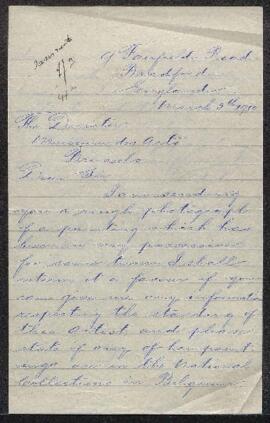 9 Fairfield Road
Bradford
England
March 9th 1910
The Director
Museum des Arts
Brussels
Dear Sir
I am sending
you a rough photograph
of a painting which has
been in my possession
for some time I shall
esteem it a favour if you
can give me any information
respecting the standing of
this artist and please
state if any of her paint
ings are in the National
Collections in Belgium